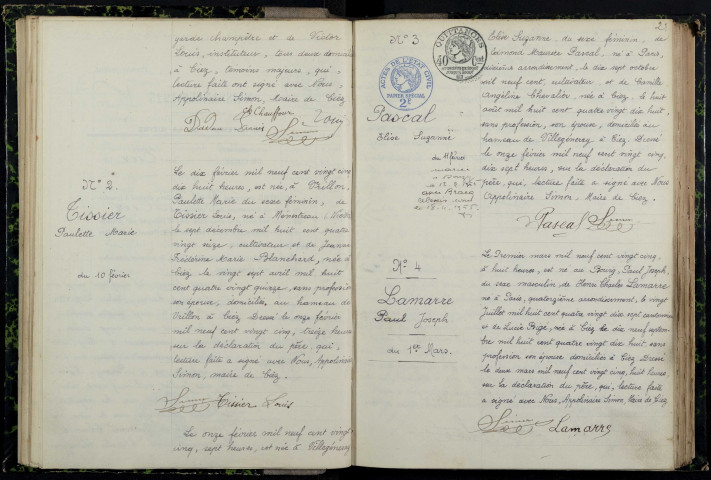 garde champêtre et de Victor
Louis, instituteur, tous deux domiciliés
à Ciez, témoins majeurs, qui,
lecture faite ont signé avec Nous,
Appolinaire Simon, Maire de Ciez.
Simon
N° 2.
Tissier
Paulette Marie
du 10 février
Le dix février mil neuf cent vingt cinq
dix huit heures, est née, à Vrillon,
Paulette Marie du sexe féminin, de
Tissier Louis, né à
le sept décembre mil huit cent quatre
vingt seize, cultivateur et de Jeanne
Frédérine Marie Blanchard, née à
Ciez le vingt sept avril mil huit
cent quatre vingt quinze, sans profession
son épouse, domiciliés au hameau de
Vrillon à Ciez. Dressé le onze février
mil neuf cent vingt cinq, treize heures
sur la déclaration du père, qui,
lecture faite a signé avec Nous, Appolinaire
Simon, maire de Ciez.
Simon Tissier Louis
Le onze février mil neuf cent vingt
cinq, sept heures, est née à Villegéneray
2
N° 3
QUITTANCES
40 Cent
ACTES DE L'ÉTAT CIVIL
PAPIER SPÉCIAL
2F
Pascal
Elise Suzanne
du 11 février
Elise Suzanne, du sexe féminin, de
Edmond Maurice Pascal, né à Paris,
dixième arrondissement, le dix sept octobre
mil neuf cent, cultivateur et de Camille
Angéline Chevalier, née à Ciez, le huit
août mil huit cent quatre vingt dix huit,
sans profession, son épouse, domiciliés au
hameau de Villegéneray, à Ciez. Dressé
le onze février mil neuf cent vingt cinq,
dix sept heures, sur la déclaration du
père, qui, lecture faite a signé avec Nous
Appolinaire Simon, Maire de Ciez.
Pascal Simon
N° 4
Lamarre
Paul Joseph
du 1er Mars.
Le Premier mars mil neuf cent vingt cinq,
à huit heures, est né au Bourg, Paul Joseph,
du sexe masculin de Henri Charles Lamarre
né à Paris, quatorzième arrondissement, le vingt
Juillet mil huit cent quatre vingt dix sept cantonnier
et de Lucie Pigé, née à Ciez le dix septem-
bre mil huit cent quatre vingt dix huit, sans
profession son épouse domiciliés à Ciez. Dressé
le deux mars mil neuf cent vingt cinq, huit heures,
sur la déclaration du père, qui, lecture faite
a signé avec Nous, Appolinaire Simon, Maire de Ciez.
Simon Lamarre